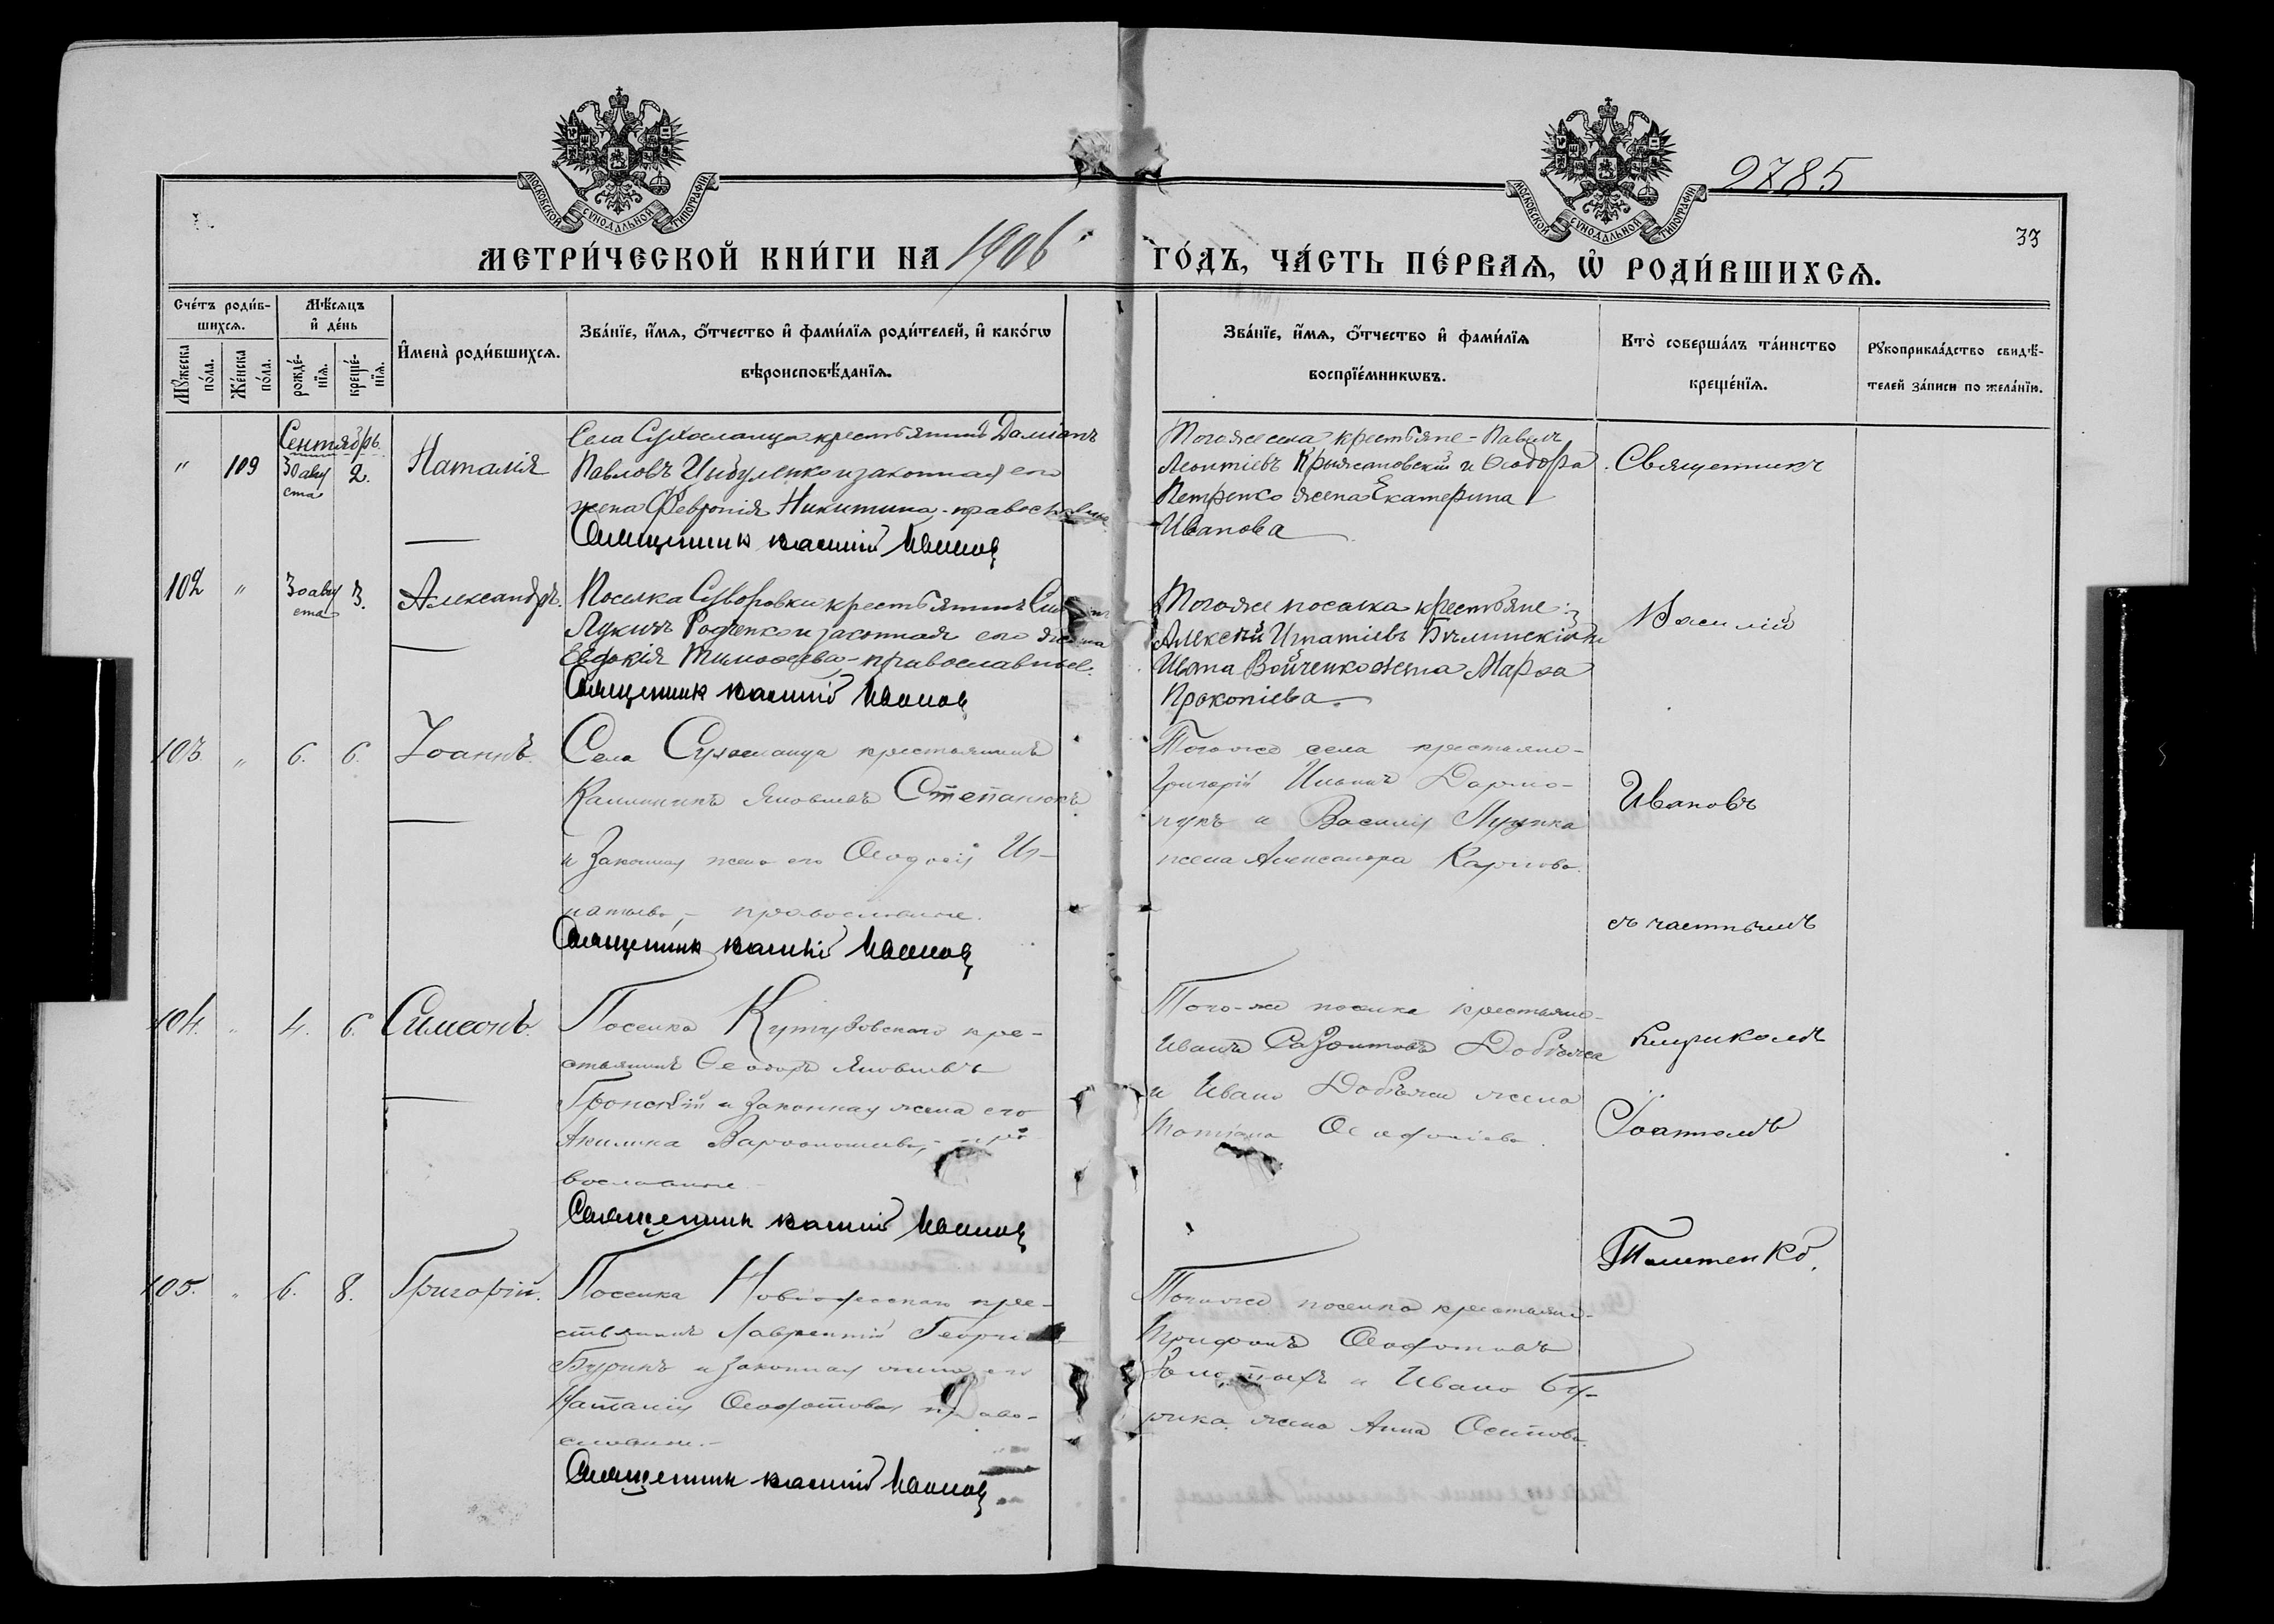 МОСКОВСКОЙ СѴНОДАЛЬНОЙ ТИПОГРАФІИ
МОСКОВСКОЙ СѴНОДАЛЬНОЙ ТИПОГРАФІИ
9785
33
МЕТРИ́ЧЕСКОЙ КНИ́ГИ НА 1906
ГО́ДЪ, ЧА́СТЬ ПЕ́РВАѦ, Ѡ҆ РОДИ́ВШИХСѦ.
Сче́тъ роди́в-
шихсѧ.
Мꙋ́жеска по́ла.
Же́нска по́ла.
Мѣ́сѧцъ
и҆ де́нь
рожде́-
нїѧ.
креще́-
нїѧ.
И҆мена̀ роди́вшихсѧ.
Зва́нїе, и҆́мѧ, ѻ҆́тчество и҆ фами́лїѧ роди́телей, и҆ како́гѡ
вѣроисповѣ́данїѧ.
Зва́нїе, и҆́мѧ, ѻ҆́тчество и҆ фами́лїѧ
воспрїе́мникѡвъ.
Кто̀ соверша́лъ та́инство
креще́нїѧ.
Рꙋкоприкла́дство свидѣ́-
телей за́писи по жела́нїю.
Сентябрь
" 109 30 авгу
ста 2. Наталія
Села Сухоеланца крестьянинъ Даміанъ
Павловъ Цыбуленко и законная его
жена Февронія Никитина - православные
Священник Василий Иванов
Тогоже села крестьяне - Павелъ
Леонтіевъ Крыжановскій и Ѳеодора
Петренко жена Екатерина
Иванова
102 " 30 авгу
ста 3. Александръ.
Поселка Суворовки крестьянинъ
Лукинъ Родченко и законная его жена
Евдокія Тимоѳеева - православные.
Священник Василий Иванов
Тогоже поселка крестьяне:
Алексѣй Игнатіевъ Бѣлинскій и
Ивана Войченко жена Марѳа
Прокопіева
103 " 6. 6. Іоаннъ.
Села Сухоеланца крестьянинъ
Каллиникъ Яковлевъ Степанюкъ
и законная жена его Ѳеодосія Иг-
натьева, - православные.
Священник Василий Иванов
Тогоже села крестьяне -
Григорій Ильинъ
и Василія
жена Александра Карпова.
104. " 4. 6. Симеонъ.
Поселка Кутузовскаго кре-
стьянинъ Ѳеодоръ Яковлевъ
Гронскій и законная жена его
Акилина Варѳоломеева, - пра
вославные
Священник Василий Иванов
Того-же поселка крестьяне -
Иванъ Созонтовъ
и Ивана жена
Татіана
105. " 6. 8. Григорій.
Поселка кре-
стьянинъ Лаврентій Георгіевъ
Буринъ и законная жена его
Наталія Ѳеофотова право-
славные. -
Священник Василий Иванов
Тогоже поселка крестьяне -
Трифонъ
и Ивана Бу-
рика жена Анна Осипова.
Священникъ
Василій
Ивановъ
съ частнымъ
клирикомъ
Іоанномъ